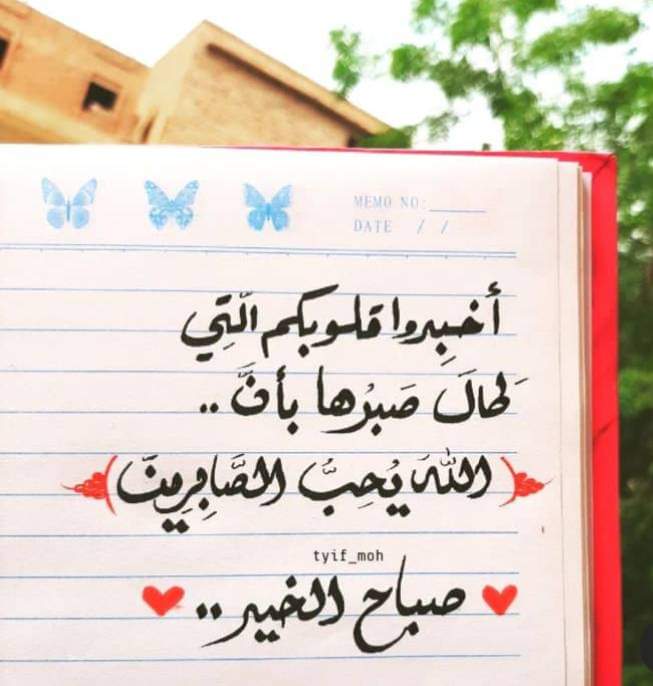 MEMO NO:
DATE / /
أخبِروا قلوبكم الّتِي
طَالَ صَبرُها بأنَّ ..
(اللّٰهَ يُحِبُّ الصَّابِرِينَ)
tyif_moh
صباح الخير ..